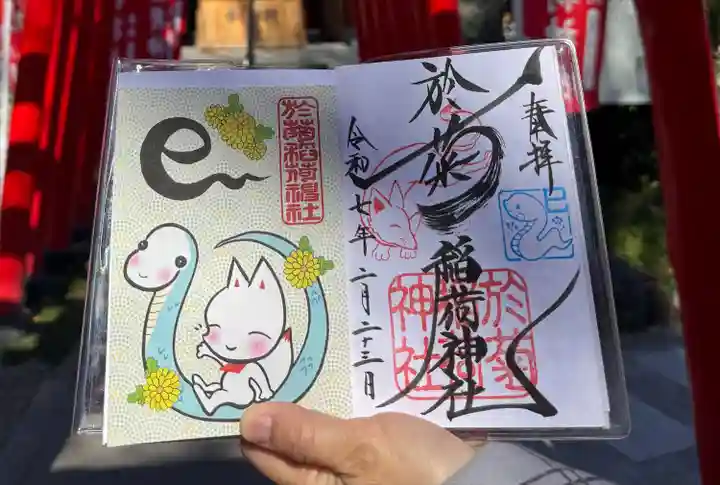 於菊稲荷神社
奉拝
於菊稲荷神社
巳
令和七年二月二十三日
於菊
神社